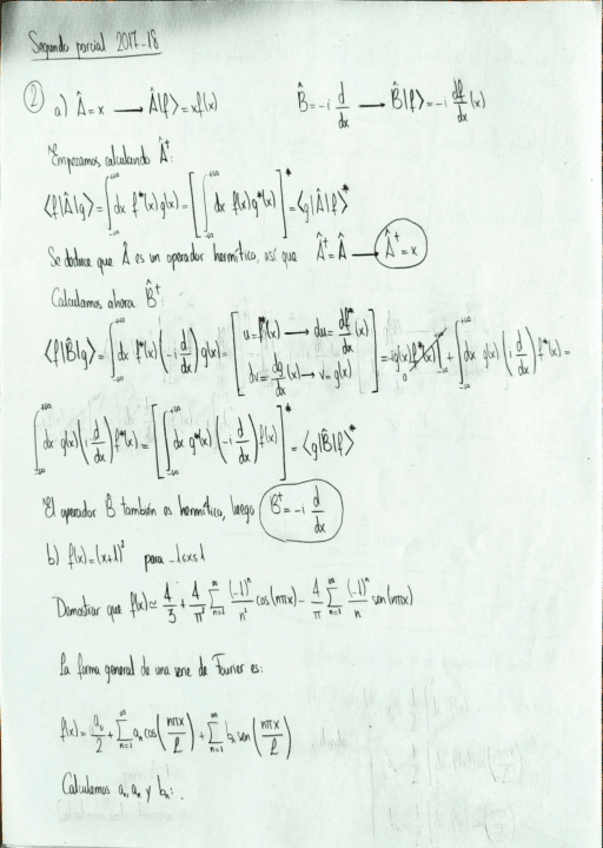 Segundo parcial 2017-18
② a) Â = x → Â|f⟩ = xf(x)    B̂ = -i d/dx → B̂|f⟩ = -i df/dx (x)
Empezamos calculando Â†:
⟨f|Â|g⟩ = ∫_{-∞}^{+∞} dx f*(x) g(x) = [∫_{-∞}^{+∞} dx f(x) g*(x)]* = ⟨g|Â|f⟩*
Se deduce que Â es un operador hermítico, así que Â† = Â → Â† = x
Calculamos ahora B̂†
⟨f|B̂|g⟩ = ∫_{-∞}^{+∞} dx f*(x) (-i d/dx) g(x) = [u = f*(x) → du = df*/dx (x); dv = dg/dx (x) → v = g(x)] = -ig(x) f*(x)|_{-∞}^{+∞} 0 + ∫_{-∞}^{+∞} dx g(x) (i d/dx) f*(x) =
∫_{-∞}^{+∞} dx g(x) (i d/dx) f*(x) = [∫_{-∞}^{+∞} dx g*(x) (-i d/dx) f(x)]* = ⟨g|B̂|f⟩*
El operador B̂ también es hermítico, luego B† = -i d/dx
b) f(x) = (x+1)² para -1≤x≤1
Demostrar que f(x) ≃ 4/3 + 4/π² ∑_{n=1}^{∞} (-1)ⁿ/n² cos(nπx) - 4/π ∑_{n=1}^{∞} (-1)ⁿ/n sen(nπx)
La forma general de una serie de Fourier es:
f(x) = a₀/2 + ∑_{n=1}^{∞} aₙ cos(nπx/ℓ) + ∑_{n=1}^{∞} bₙ sen(nπx/ℓ)
Calculamos a₀, aₙ y bₙ: